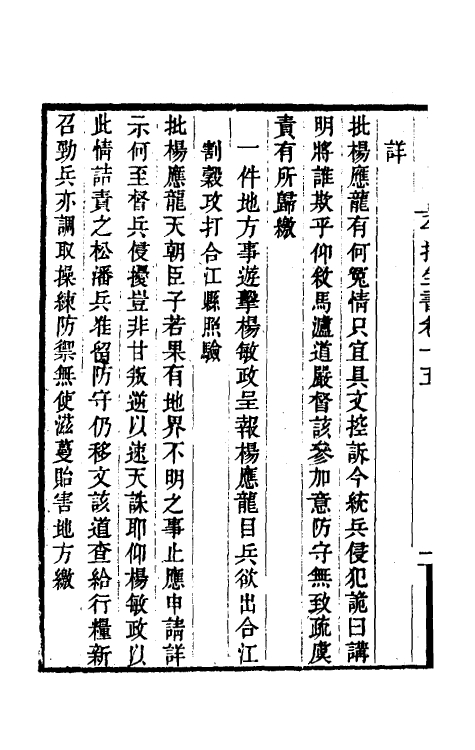 詳
批楊應龍有何冤情只宜具文控訴今統兵侵犯詭曰講
明將誰欺乎仰敘馬瀘道嚴督該參加意防守無致疏虞
責有所歸繳
一件地方事遊擊楊敏政呈報楊應龍目兵欲出合江
割穀攻打合江縣照驗
批楊應龍天朝臣子若果有地界不明之事止應申請詳
示何至督兵侵擾豈非甘叛逆以速天誅耶仰楊敏政以
此情詰責之松潘兵准留防守仍移文該道查給行糧新
召勁兵亦調取操練防禦無使滋蔓貽害地方繳